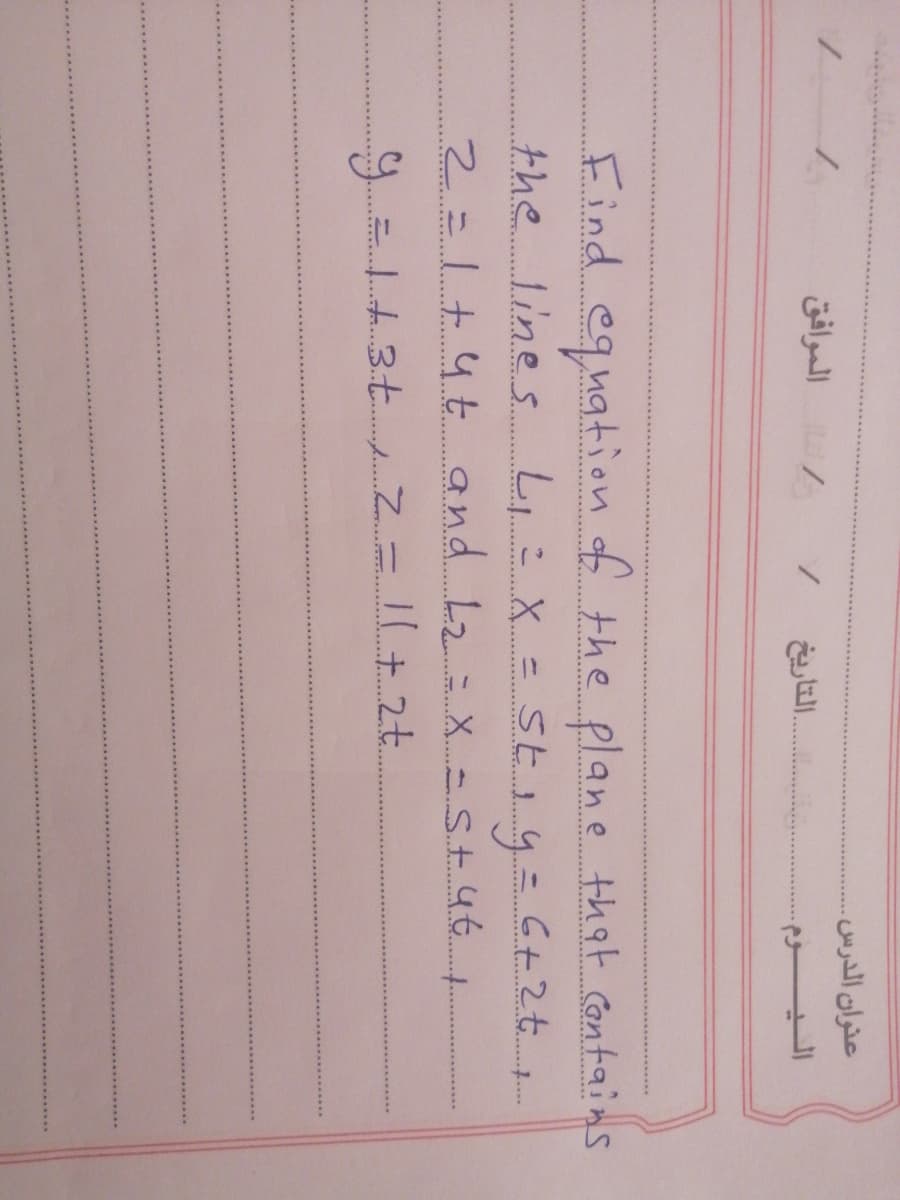 عنوان الدرس
اليـــوم التاريخ / / الموافق / /
Find equation of the plane that contains
the lines L1: x = 5t, y = 6+2t,
z = 1+4t and L2: x = 5+4t,
y = 1+3t, z = 11+2t